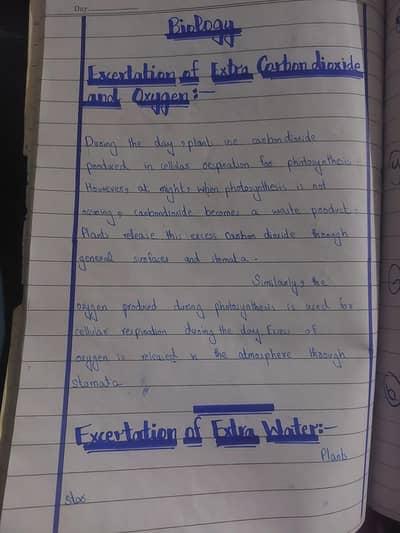 Day
Biology
Excertation of Extra Carbon dioxide
and Oxygen:-
During the day, plant use carbondioxide
produced in cellular respiration for photosynthesis.
However, at night, when photosynthesis is not
occuring, carbondioxide becomes a waste product.
Plants release this excess carbon dioxide through
general surfaces and stomata.
Similarly, the
oxygen produced during photosynthesis is used for
cellular respiration during the day. Excess of
oxygen is released in the atmosphere through
stomata
Excertation of Extra Water:-
Plants
stor